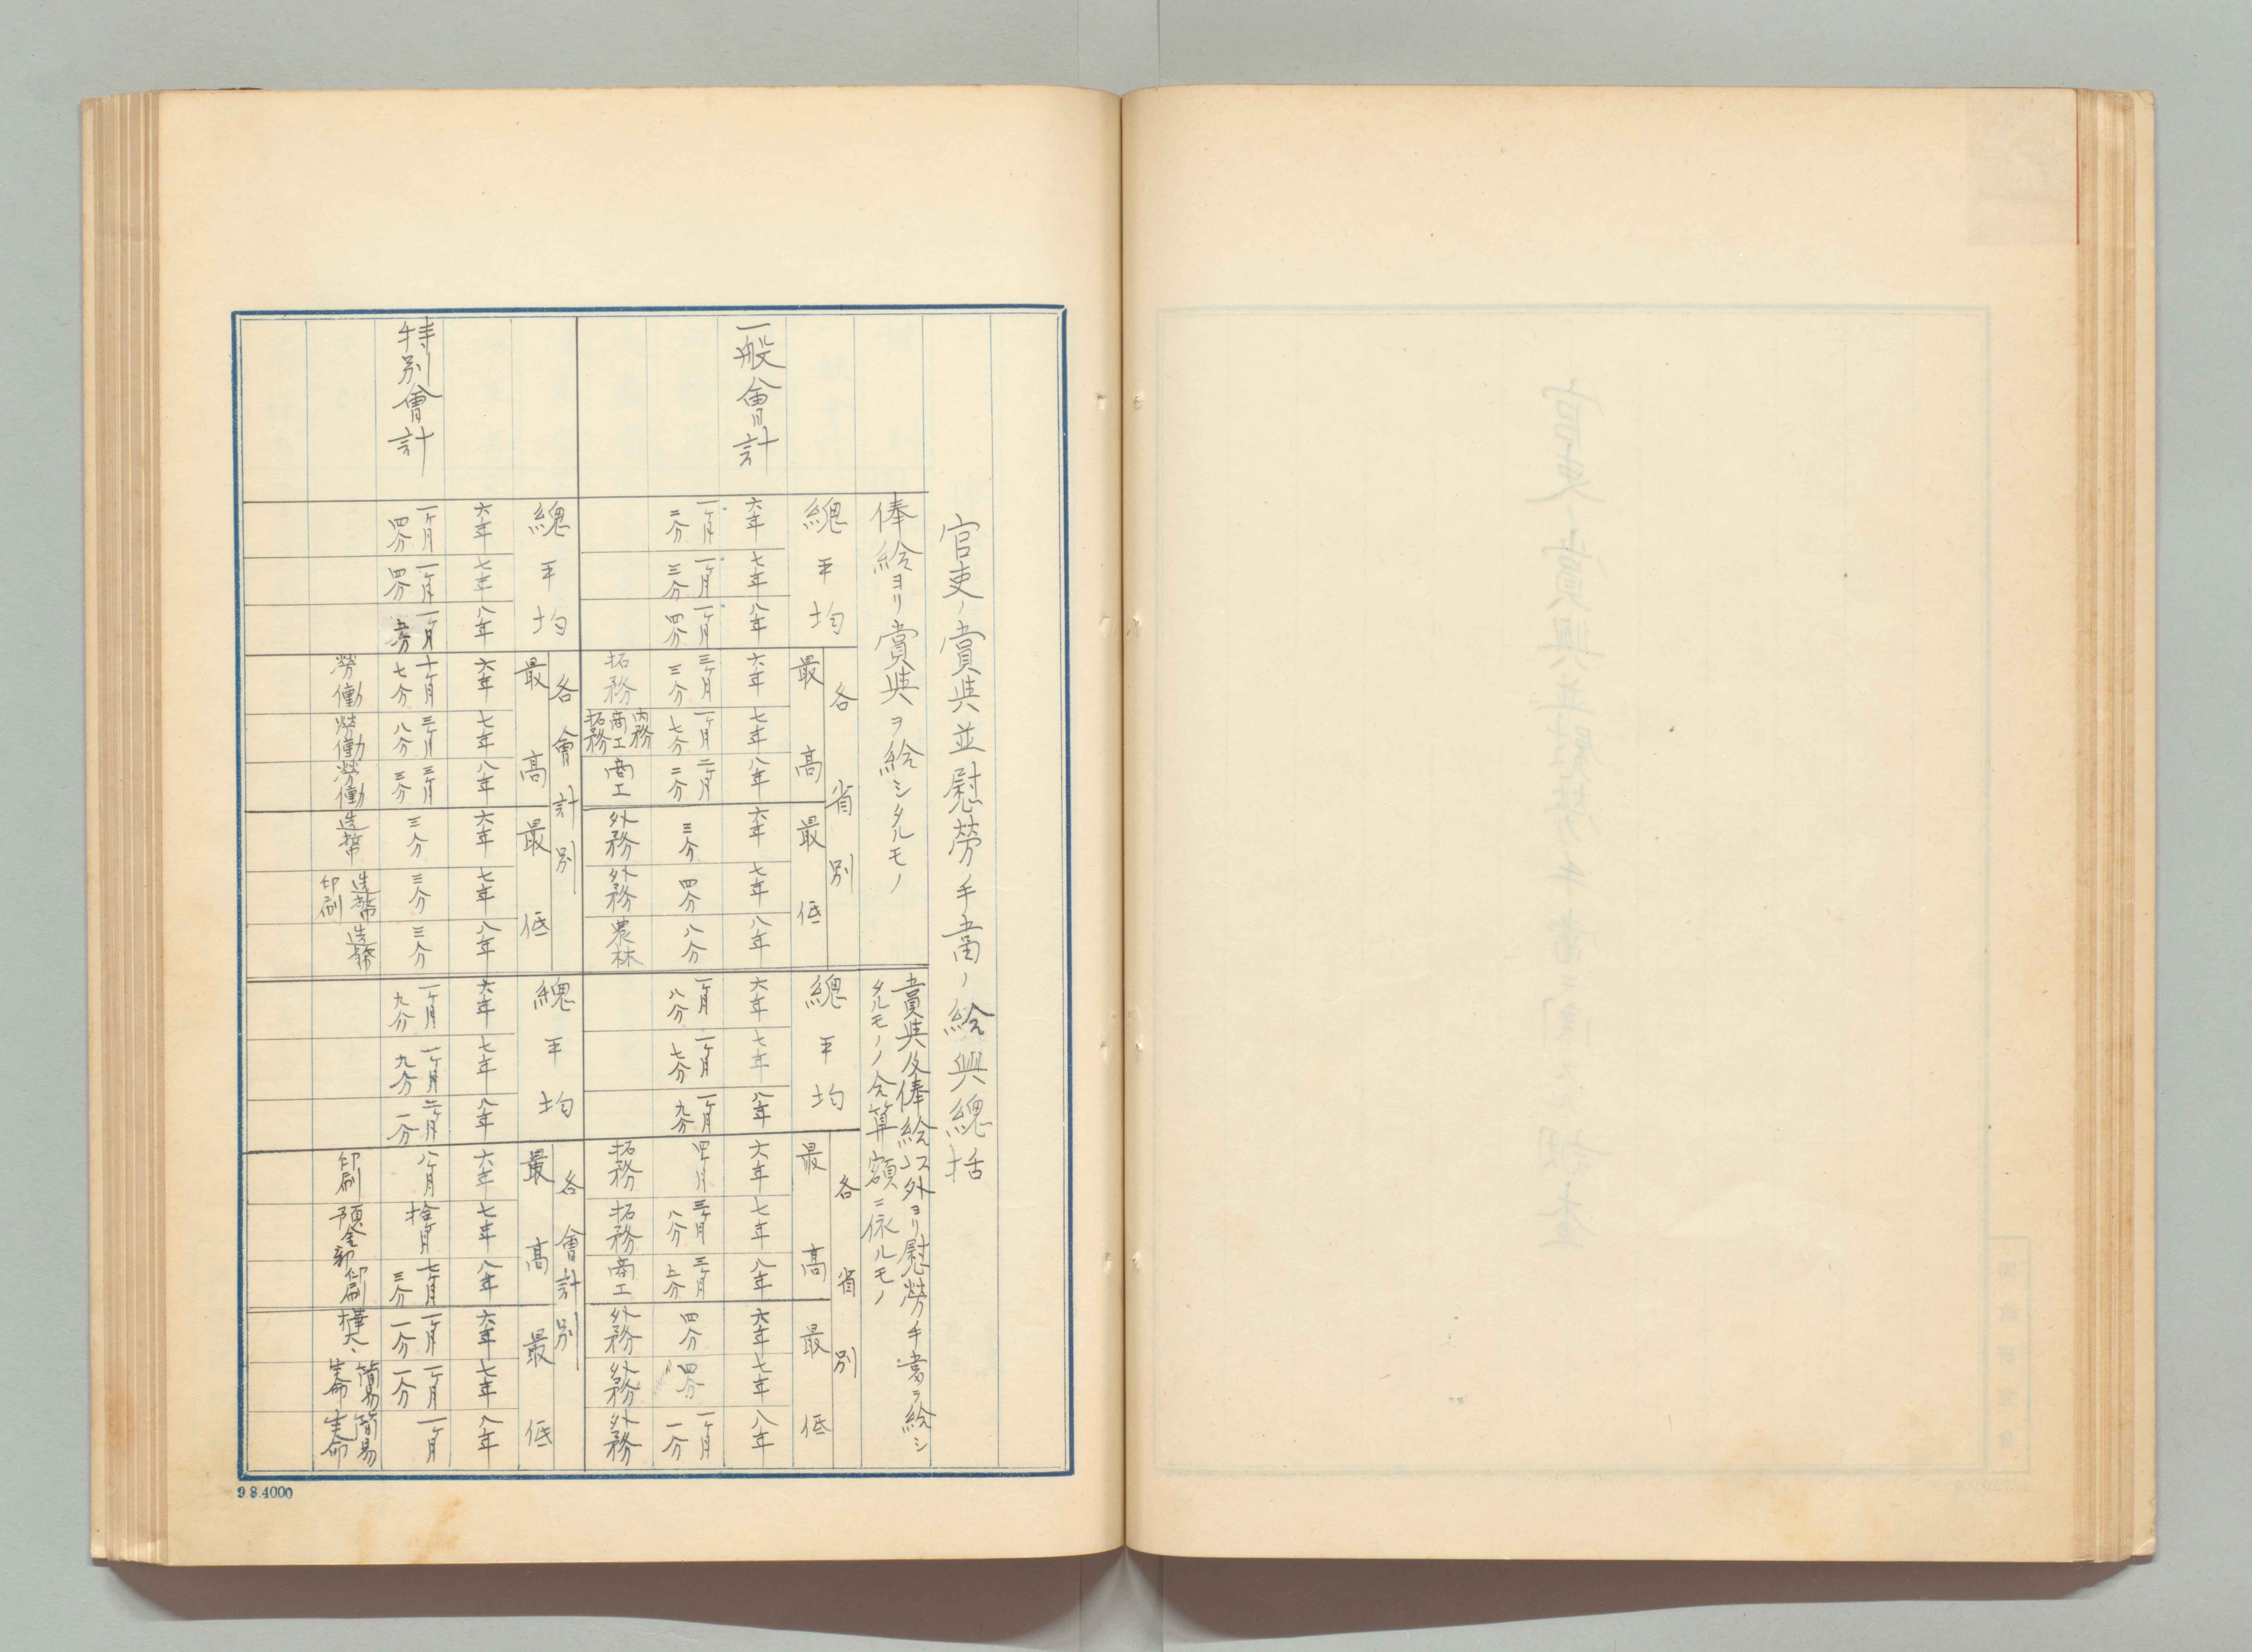 官吏ノ賞與並慰勞手當ノ給與總括
俸給ヨリ賞與ヲ給シタルモノ
賞與及俸給以外ヨリ慰勞手當ヲ給シ
タルモノノ合算額ニ依ルモノ
一般會計
總平均
六年 一ヶ月二分
七年 一ヶ月三分
八年 一ヶ月四分
各省別
最高
六年 三ヶ月三分 拓務
七年 一ヶ月七分 內務 商工 拓務
八年 二ヶ月二分 商工
最低
六年 三分 外務
七年 四分 外務
八年 八分 農林
總平均
六年 一ヶ月八分
七年 一ヶ月七分
八年 一ヶ月九分
各省別
最高
六年 四ヶ月 拓務
七年 三ヶ月八分 拓務
八年 三ヶ月 商工
最低
六年 四分 外務
七年 四分 外務
八年 一ヶ月一分 外務
特別會計
總平均
六年 一ヶ月四分
七年 一ヶ月四分
八年 一ヶ月五分
各會計別
最高
六年 十ヶ月七分 勞働
七年 三ヶ月八分 勞働
八年 三ヶ月三分 勞働
最低
六年 三分 造幣
七年 三分 造幣 印刷
八年 三分 造幣
總平均
六年 一ヶ月九分
七年 一ヶ月九分
八年 二ヶ月一分
各會計別
最高
六年 八ヶ月 印刷
七年 拾ヶ月 預金部
八年 七ヶ月三分 印刷
最低
六年 一ヶ月一分 樺太
七年 一ヶ月一分 簡易生命
八年 一ヶ月 簡易生命
9 8.4000